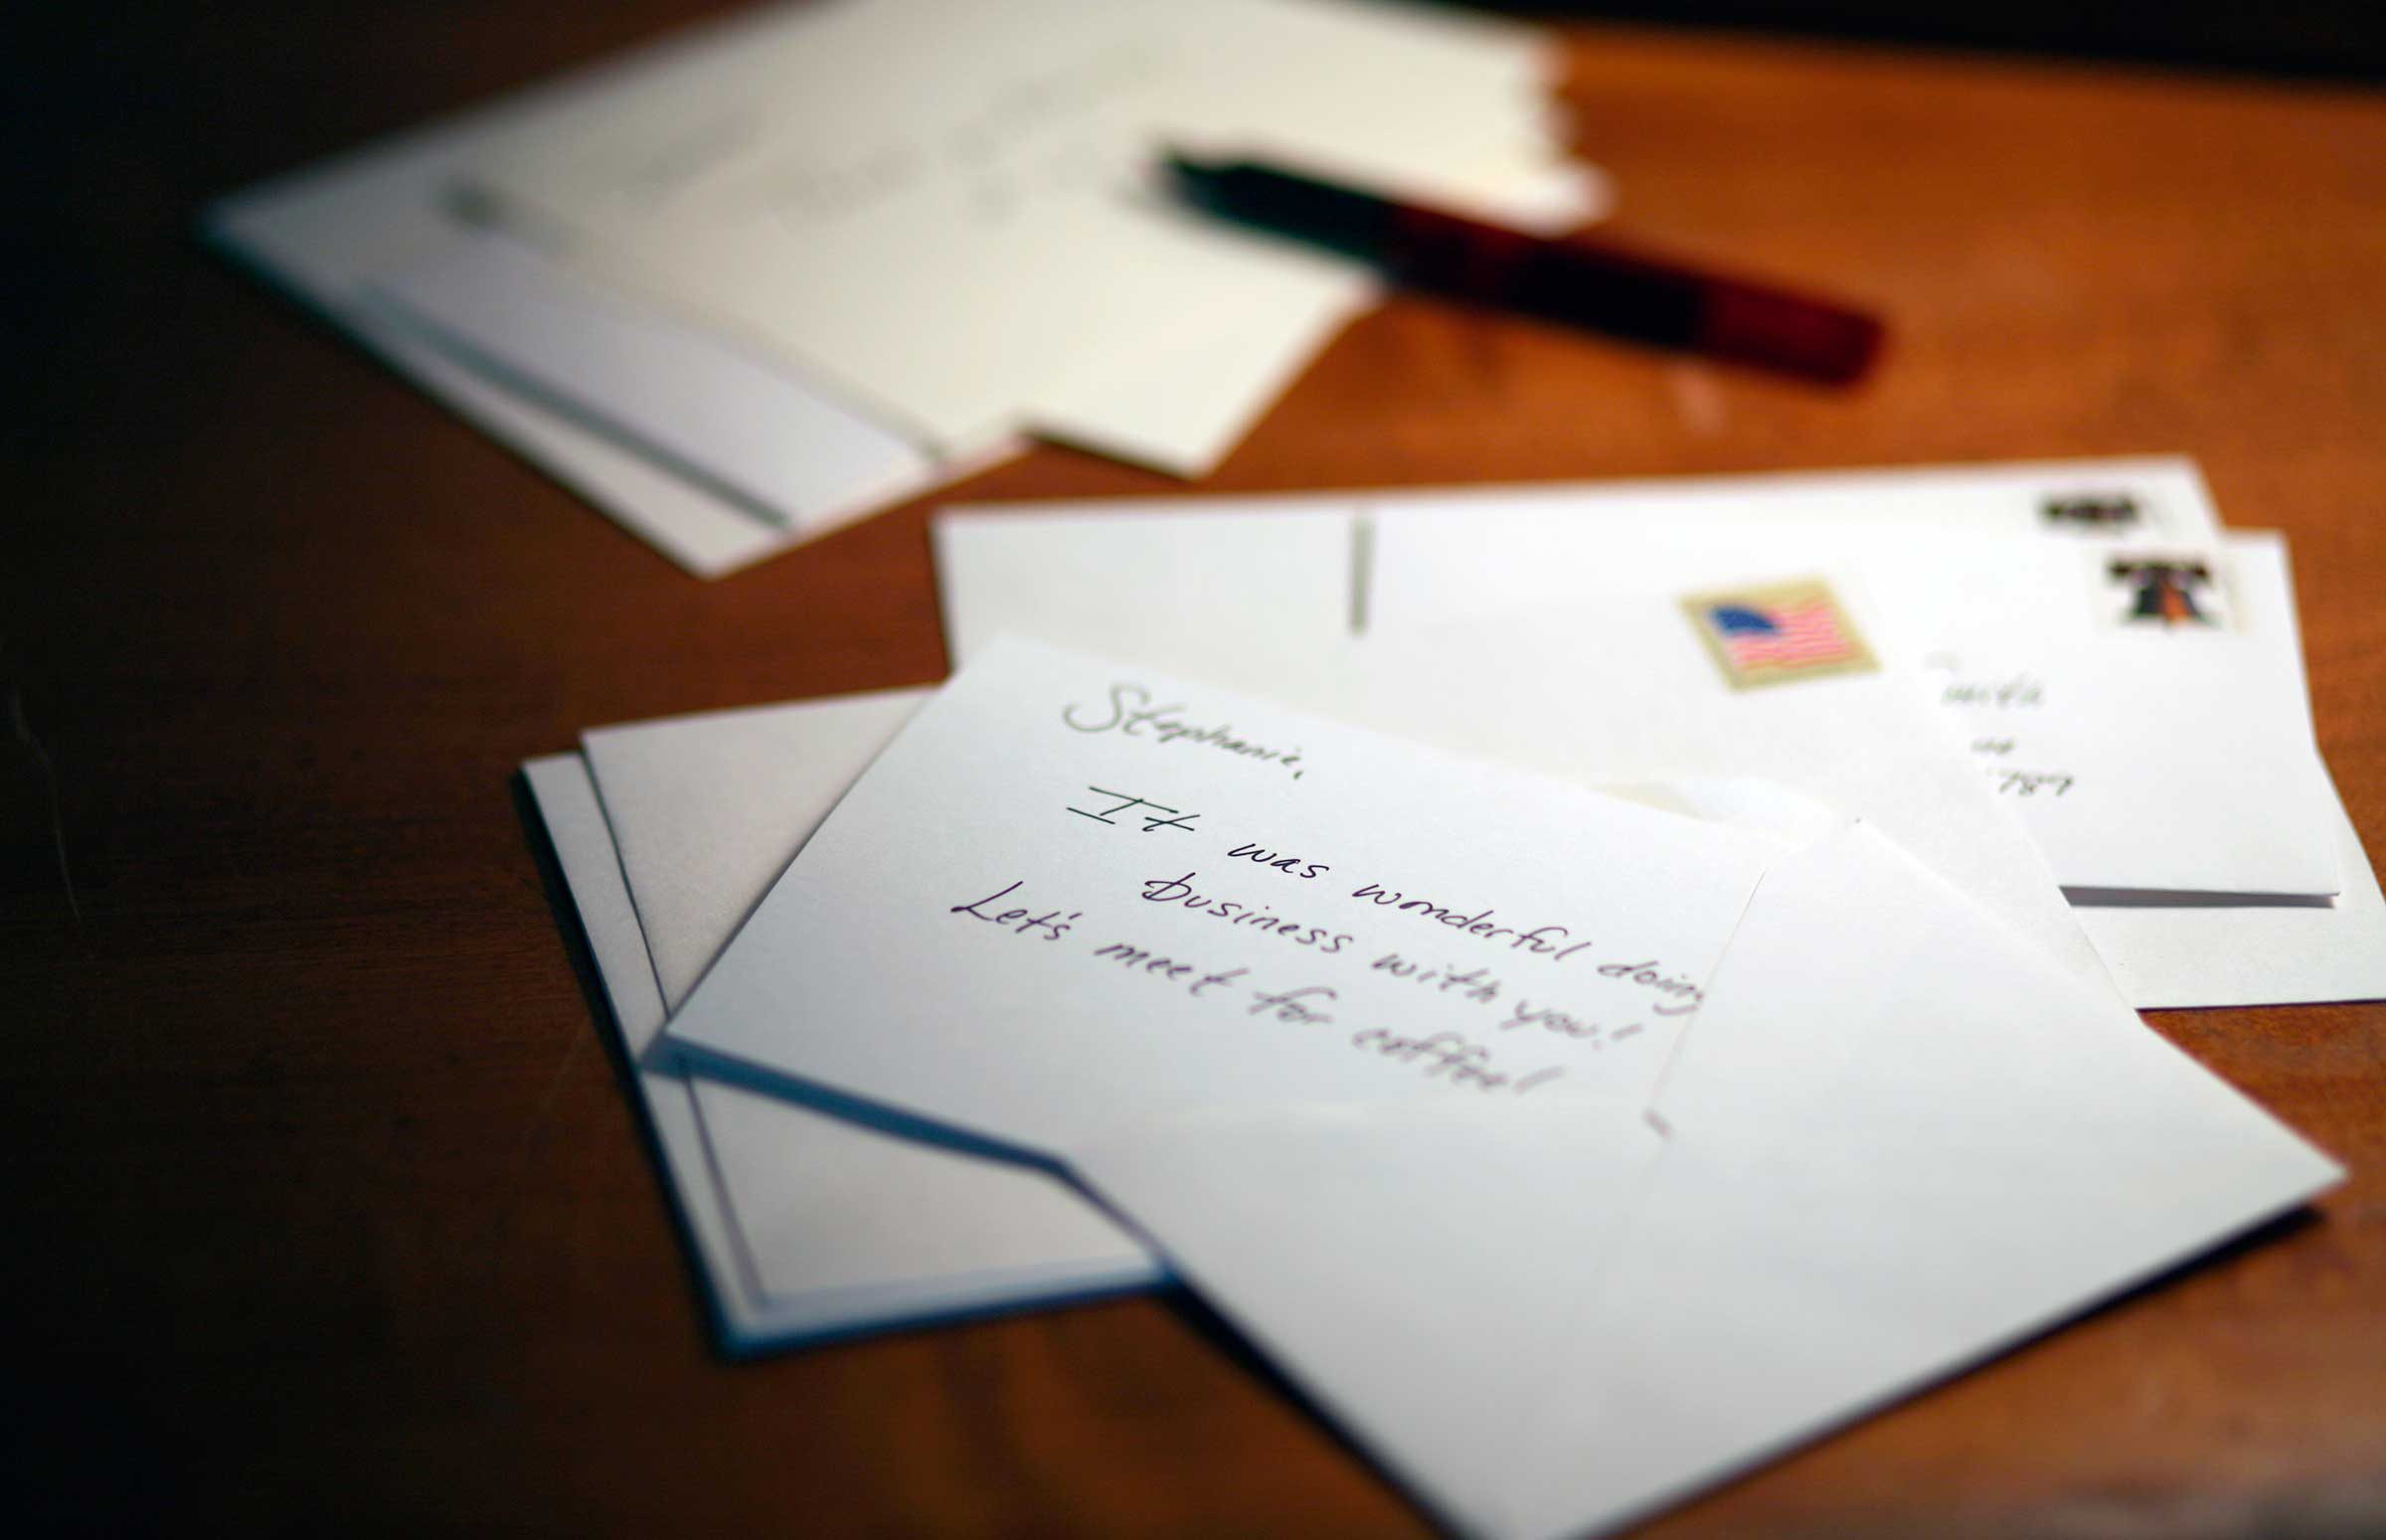 Stephanie,
It was wonderful doing
business with you!
Let's meet for coffee!
789